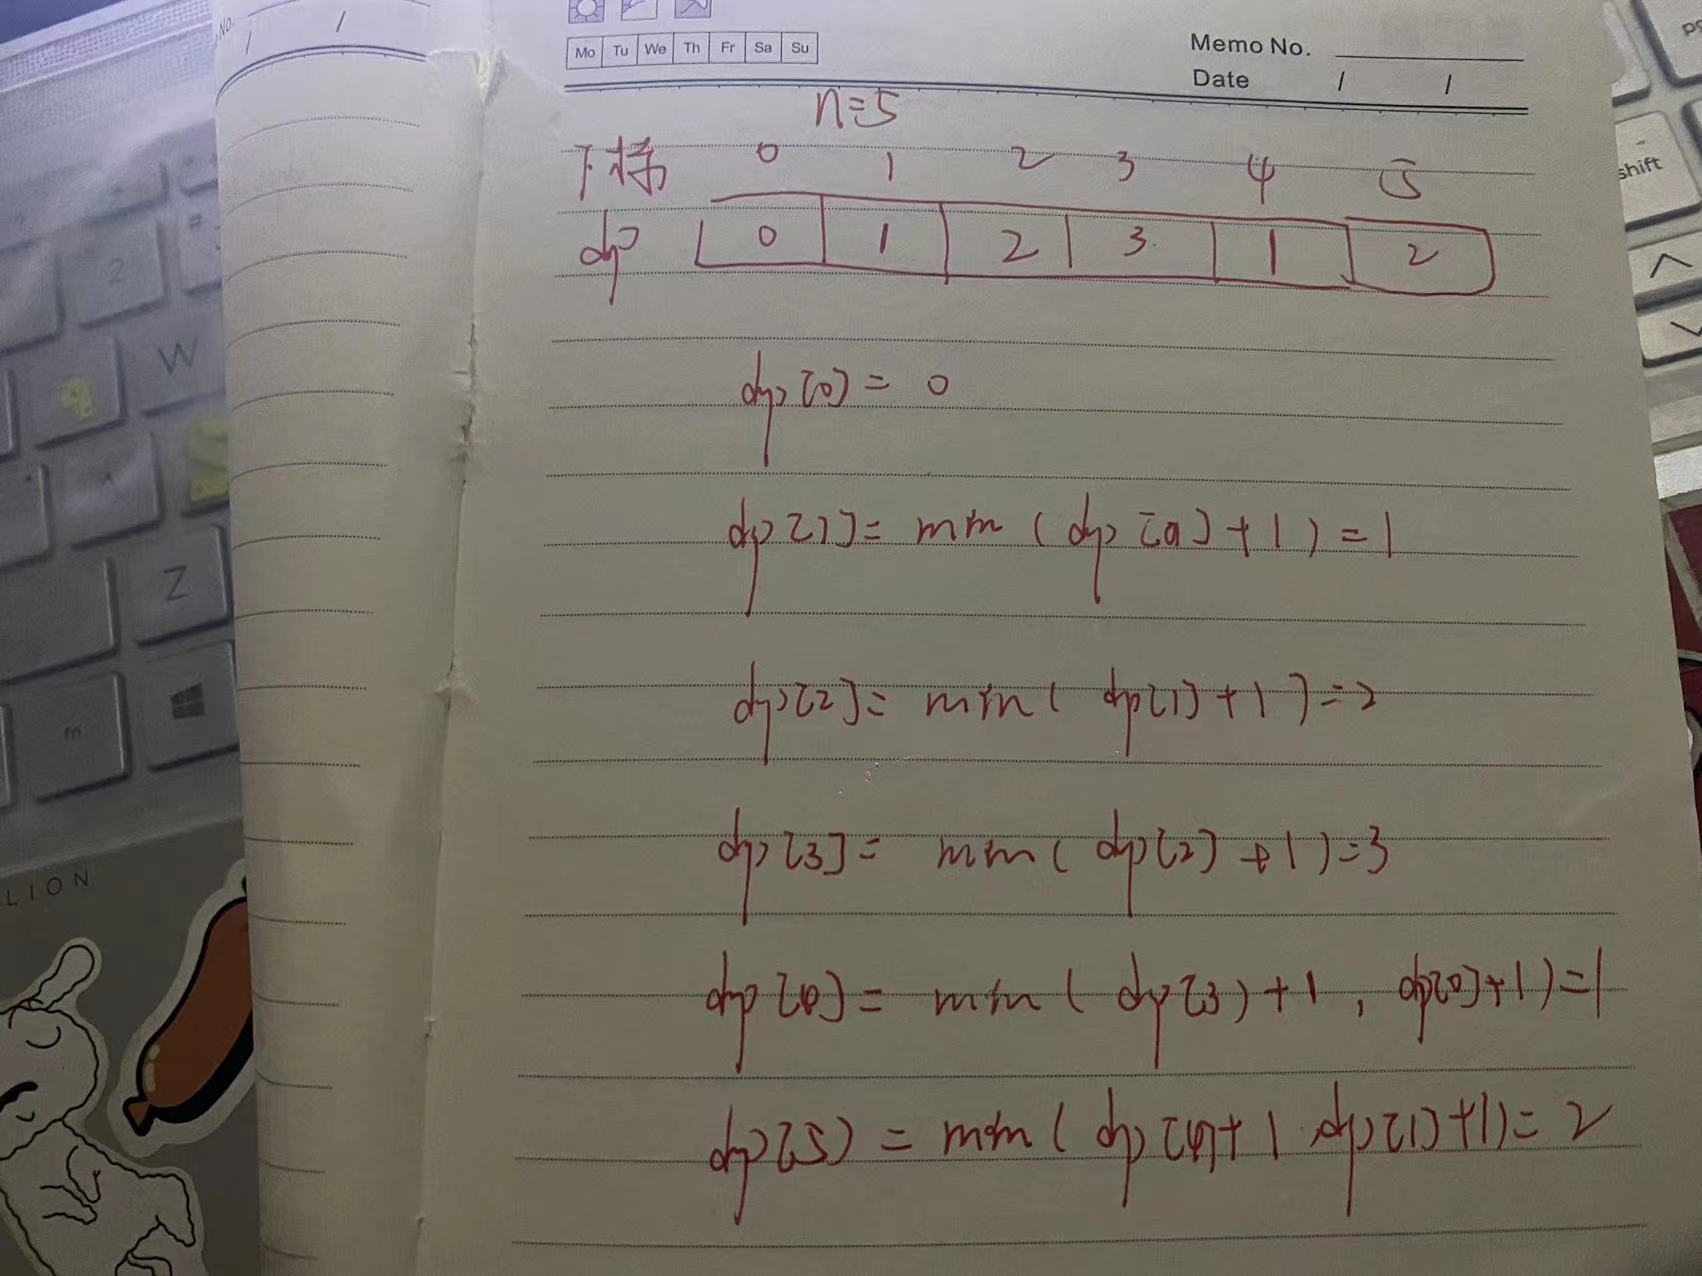 No.
/ /
Mo Tu We Th Fr Sa Su
Memo No.
Date / /
n=5
下标 0 1 2 3 4 5
dp 0 1 2 3 1 2
dp[0] = 0
dp[1] = min(dp[0]+1) = 1
dp[2] = min(dp[1]+1) = 2
dp[3] = min(dp[2]+1) = 3
dp[4] = min(dp[3]+1, dp[0]+1) = 1
dp[5] = min(dp[4]+1, dp[1]+1) = 2
shift
2
W
Z
fn
LION